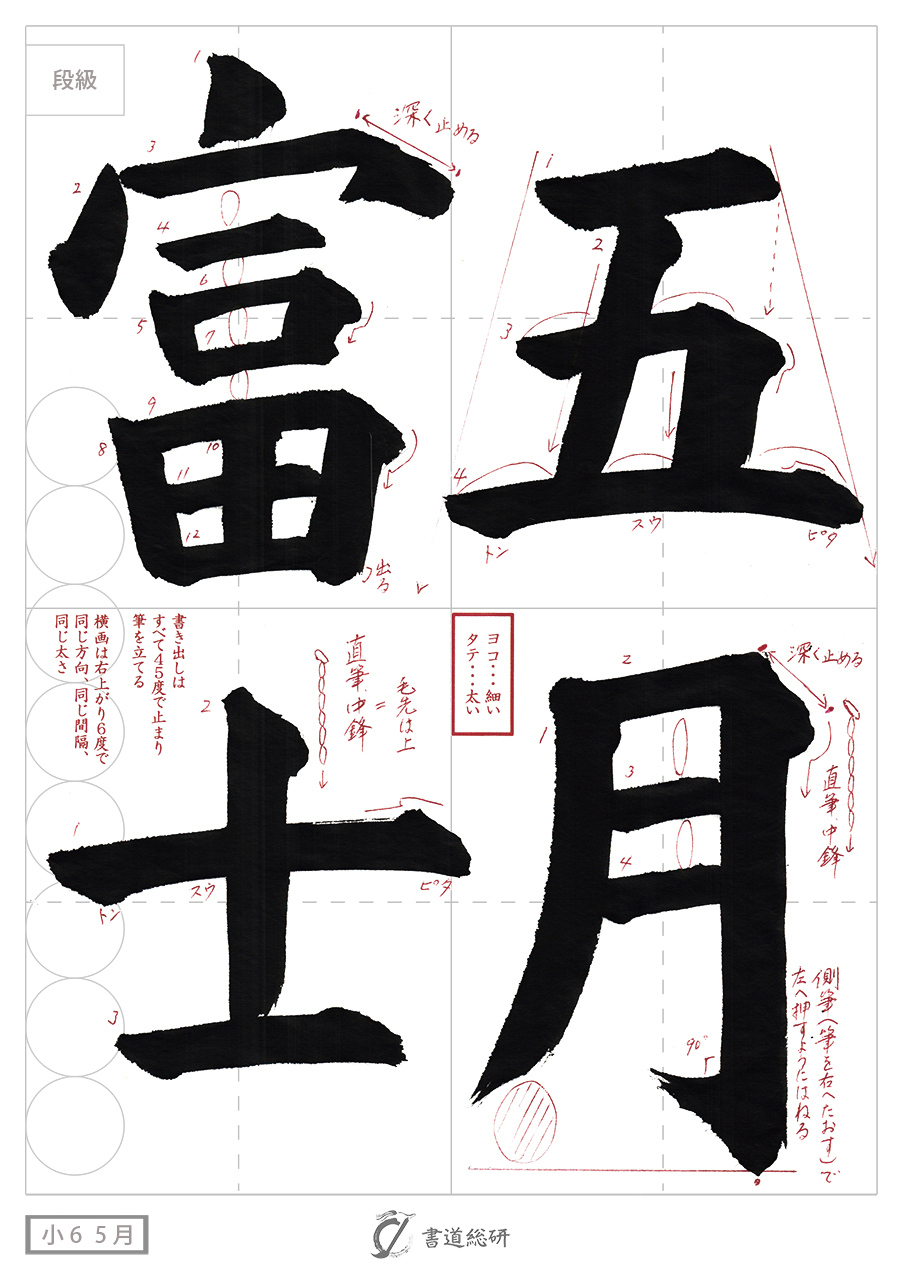 段級
五月
富士
1
2
3
4
トン
スウ
ピタ
1
2
3
4
深く止める
直筆中鋒
側筆(筆を右へたおす)で
左へ押すようにはねる
90°
ヨコ・・・細い
タテ・・・太い
1
2
3
4
5
6
7
8
9
10
11
12
深く止める
出る
1
2
3
トン
スウ
ピタ
毛先は上
=
直筆中鋒
書き出しは
すべて45度で止まり
筆を立てる
横画は右上がり6度で
同じ方向、同じ間隔、
同じ太さ
小6 5月
書道総研